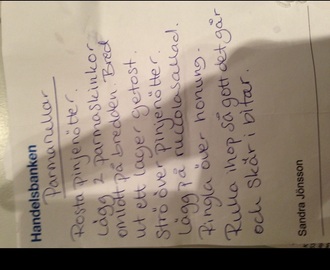 Handelsbanken
Parmarullar
Rosta pinjenötter.
Lägg 2 Parmaskinkor
omlott på bredden. Bred
ut ett lager getost.
Strö över Pinjenötter.
Lägg på ruccolasallad.
Ringla över honung.
Rulla ihop så gott det går
och skär i bitar.
Sandra Jönsson